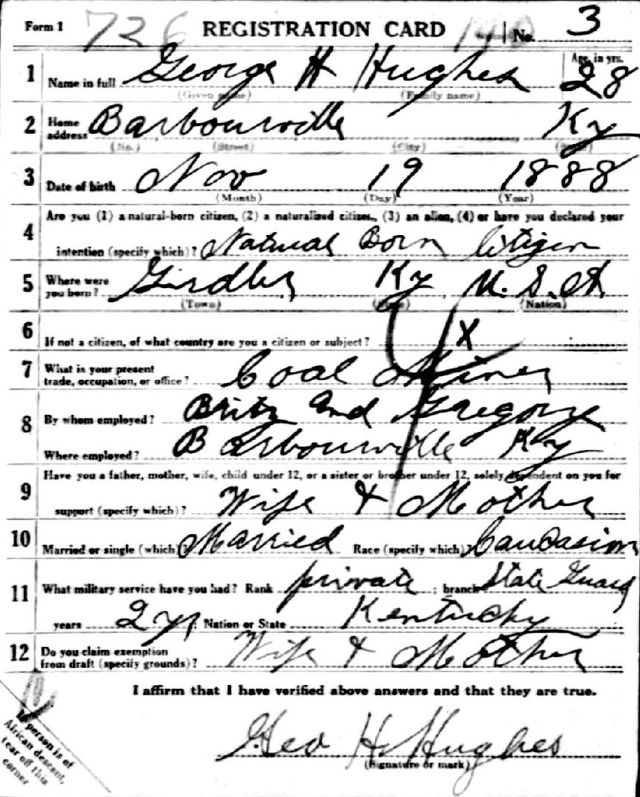 Form 1 726 REGISTRATION CARD No. 3
1 Name in full George H Hughes Age, in yrs. 28
(Given name) (Family name)
2 Home address Barbourville Ky
(No.) (Street) (City) (State)
3 Date of birth Nov 19 1888
(Month) (Day) (Year)
4 Are you (1) a natural-born citizen, (2) a naturalized citizen, (3) an alien, (4) or have you declared your
intention (specify which)? Natural Born Citizen
5 Where were you born? Girdler Ky U.S.A.
(Town) (State) (Nation)
6 If not a citizen, of what country are you a citizen or subject? X
7 What is your present trade, occupation, or office? Coal Miner
8 By whom employed? and Gregory
Where employed? Barbourville Ky
9 Have you a father, mother, wife, child under 12, or a sister or brother under 12, solely dependent on you for
support (specify which)? Wife & Mother
10 Married or single (which)? Married Race (specify which)? Caucasian
11 What military service have you had? Rank private ; branch State Guard
years 2 yr ; Nation or State Kentucky
12 Do you claim exemption from draft (specify grounds)? Wife & Mother
I affirm that I have verified above answers and that they are true.
Geo H. Hughes
(Signature or mark)
If person is of
African descent,
tear off this
corner